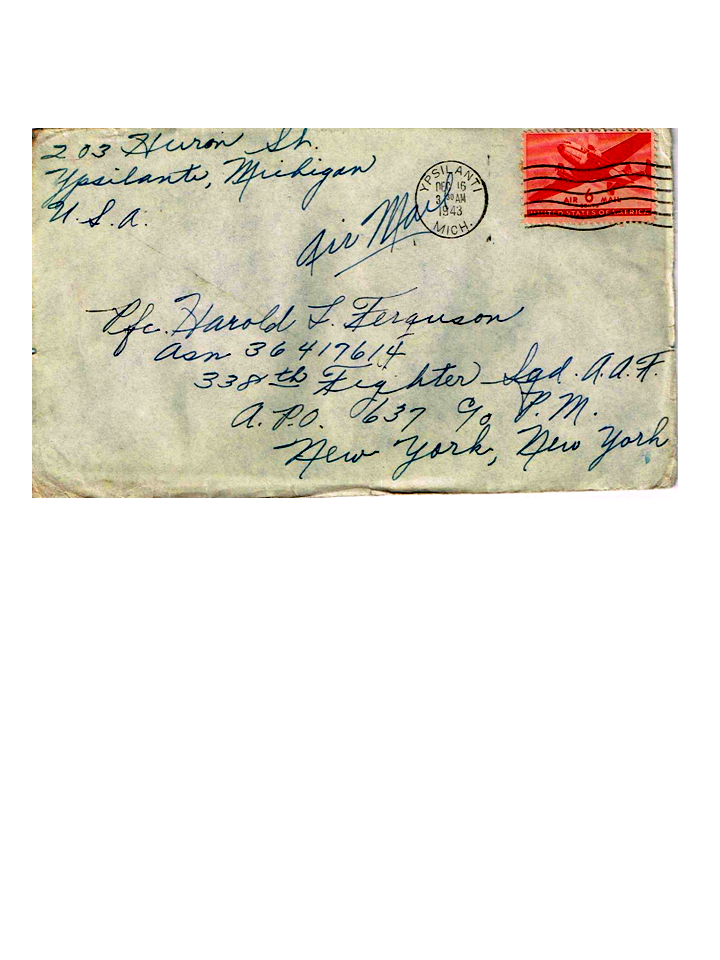 203 Huron St.
Ypsilanti, Michigan
U.S.A.
Air Mail
YPSILANTI
DEC 16
3 30 AM
1943
MICH.
AIR 6¢ MAIL
UNITED STATES OF AMERICA
Pfc. Harold L. Ferguson
asn 36417614
338th Fighter Sqd. A.A.F.
A.P.O. 637 c/o P.M.
New York, New York